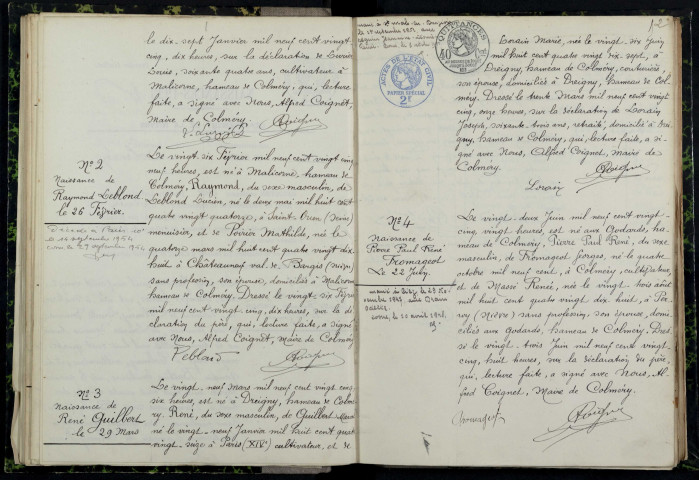 le dix. sept Janvier mil neuf cent vingt-
cinq, dix heures, sur la déclaration de
Louis, soixante quatre ans, cultivateur à
Malicorne, hameau de Colméry, qui, lecture
faite, a signé avec Nous, Alfred Coignet,
Maire de Colméry.
N° 2
Naissance de
Raymond Leblond
le 26 Février.
Le vingt. six Février mil neuf cent vingt cinq
neuf heures, est né à Malicorne, hameau de
Colméry, Raymond, du sexe masculin, de
Leblond Lucien, né le deux mai mil huit cent
quatre vingt quatorze, à Saint-Ouen (Seine)
menuisier, et de Mathilde, née le
quatorze mars mil huit cent quatre vingt dix
huit à Châteauneuf val. de Bargis (Nièvre)
sans profession, son épouse, domiciliés à Malicorne
hameau de Colméry. Dressé le vingt. six Février
mil neuf cent vingt-cinq, dix heures, sur la dé
claration du père, qui, lecture faite, a signé
avec Nous, Alfred Coignet, Maire de Colméry
Leblond
N° 3
Naissance de
René Guilbert
le 29 Mars
Le vingt. neuf Mars mil neuf cent vingt cinq
six heures, est né à Dreigny, hameau de Colmé
ry. René, du sexe masculin, de Guilbert
né le vingt. neuf Janvier mil huit cent quatre
vingt. seize à Paris (XIVe) cultivateur, et de
12
QUITTANCES
ACTES DE L'ETAT CIVIL
PAPIER SPECIAL
2F
Lorain Marie, née le vingt. six Juin
mil huit cent quatre vingt dix. sept, à
Dreigny, hameau de Colméry, couturière,
son épouse, domiciliés à Dreigny, hameau de Col
méry. Dressé le trente Mars mil neuf cent vingt
cinq, onze heures, sur la déclaration de Lorain
Joseph, soixante. trois ans, retraité, domicilié à Drei
gny, hameau de Colméry, qui, lecture faite, a si
gné avec Nous, Alfred Coignet, maire de
Colméry.
Lorain
N° 4
Naissance de
Pierre Paul René
Fromageot
Le 22
Le vingt. deux Juin mil neuf cent vingt-
cinq, vingt heures, est né aux Godards, ha
meau de Colméry, Pierre Paul René, du sexe
masculin, de Fromageot Georges, né le quatre
octobre mil neuf cent, à Colméry, cultivateur,
et de Massé Renée, née le vingt trois août
mil huit cent quatre vingt dix. huit, à
(Nièvre) sans profession, son épouse, domi
ciliés aux Godards, hameau de Colméry. Dres
sé le vingt. trois Juin mil neuf cent vingt-
cinq, huit heures, sur la déclaration du père,
qui, lecture faite, a signé avec Nous, Al
fred Coignet, Maire de Colméry.
Fromageot